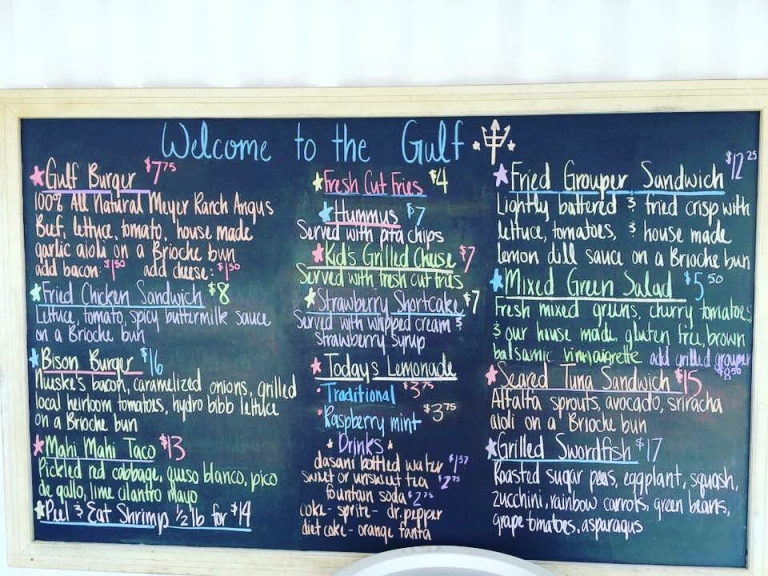 Welcome to the Gulf
Gulf Burger $7.75
100% All Natural Meyer Ranch Angus
Beef, lettuce, tomato, house made
garlic aioli on a Brioche bun
add bacon: $1.50 add cheese: $1.50
Fried Chicken Sandwich $8
Lettuce, tomato, spicy buttermilk sauce
on a Brioche bun
Bison Burger $16
Nueske's bacon, caramelized onions, grilled
local heirloom tomatoes, hydro bibb lettuce
on a Brioche bun
Mahi Mahi Taco $13
Pickled red cabbage, queso blanco, pico
de gallo, lime cilantro mayo
Peel & Eat Shrimp 1/2 lb for $14
Fresh Cut Fries $4
Hummus $7
Served with pita chips
Kid's Grilled Cheese $7
Served with fresh cut fries
Strawberry Shortcake $7
Served with whipped cream &
strawberry syrup
Today's Lemonade
Traditional $3.75
Raspberry mint $3.75
Drinks
dasani bottled water $1.57
sweet or unsweet tea $2.75
fountain soda $2.75
coke - sprite - dr. pepper
diet coke - orange fanta
Fried Grouper Sandwich $12.25
Lightly battered & fried crisp with
lettuce, tomatoes, & house made
lemon dill sauce on a Brioche bun
Mixed Green Salad $5.50
Fresh mixed greens, cherry tomatoes
& our house made, gluten free, brown
balsamic vinaigrette add grilled grouper
$8.50
Seared Tuna Sandwich $15
Alfalfa sprouts, avocado, sriracha
aioli on a Brioche bun
Grilled Swordfish $17
Roasted sugar peas, eggplant, squash,
zucchini, rainbow carrots, green beans,
grape tomatoes, asparagus